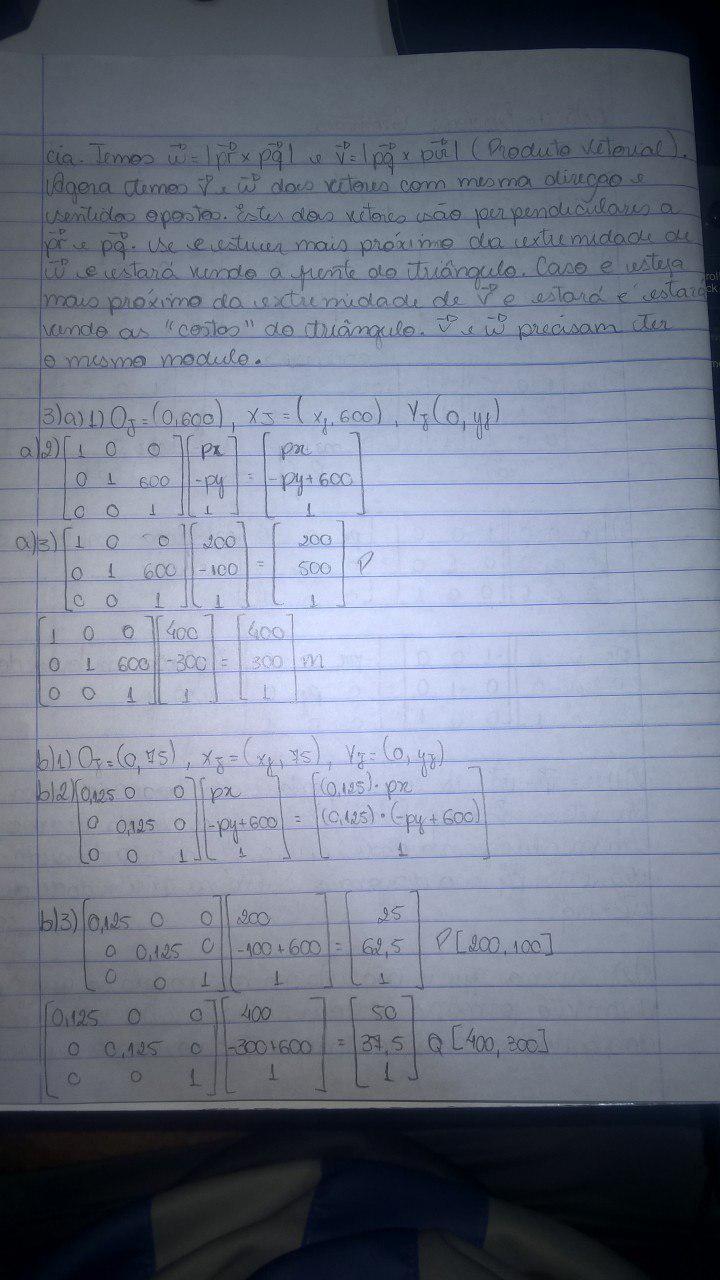 cia. Temos w⃗ = |pr⃗ x pq⃗| e v⃗ = |pq⃗ x pr⃗| (Produto vetorial).
Agora temos v⃗ e w⃗ dois vetores com mesma direção e
sentidos opostos. Estes dois vetores são perpendiculares a
pr⃗ e pq⃗. Se e estiver mais próximo da extremidade de
w⃗ e estará vendo a frente do triângulo. Caso e esteja
mais próximo da extremidade de v⃗ e estará e estará
vendo as "costas" do triângulo. v⃗ e w⃗ precisam ter
o mesmo modulo.
3)a)1) OJ=(0,600), XJ=(xJ,600), YJ(0,yJ)
a)2) [1 0 0] [px] [px]
[0 1 600] [-py] = [-py+600]
[0 0 1] [1] [1]
a)3) [1 0 0] [200] [200]
[0 1 600] [-100] = [500] P
[0 0 1] [1] [1]
[1 0 0] [400] [400]
[0 1 600] [-300] = [300] m
[0 0 1] [1] [1]
b)1) OJ=(0,75), XJ=(xJ,75), YJ=(0,yJ)
b)2) [0,125 0 0] [px] [(0,125)·px]
[0 0,125 0] [-py+600] = [(0,125)·(-py+600)]
[0 0 1] [1] [1]
b)3) [0,125 0 0] [200] [25]
[0 0,125 0] [-100+600] = [62,5] P[200,100]
[0 0 1] [1] [1]
[0,125 0 0] [400] [50]
[0 0,125 0] [-300+600] = [37,5] Q[400,300]
[0 0 1] [1] [1]